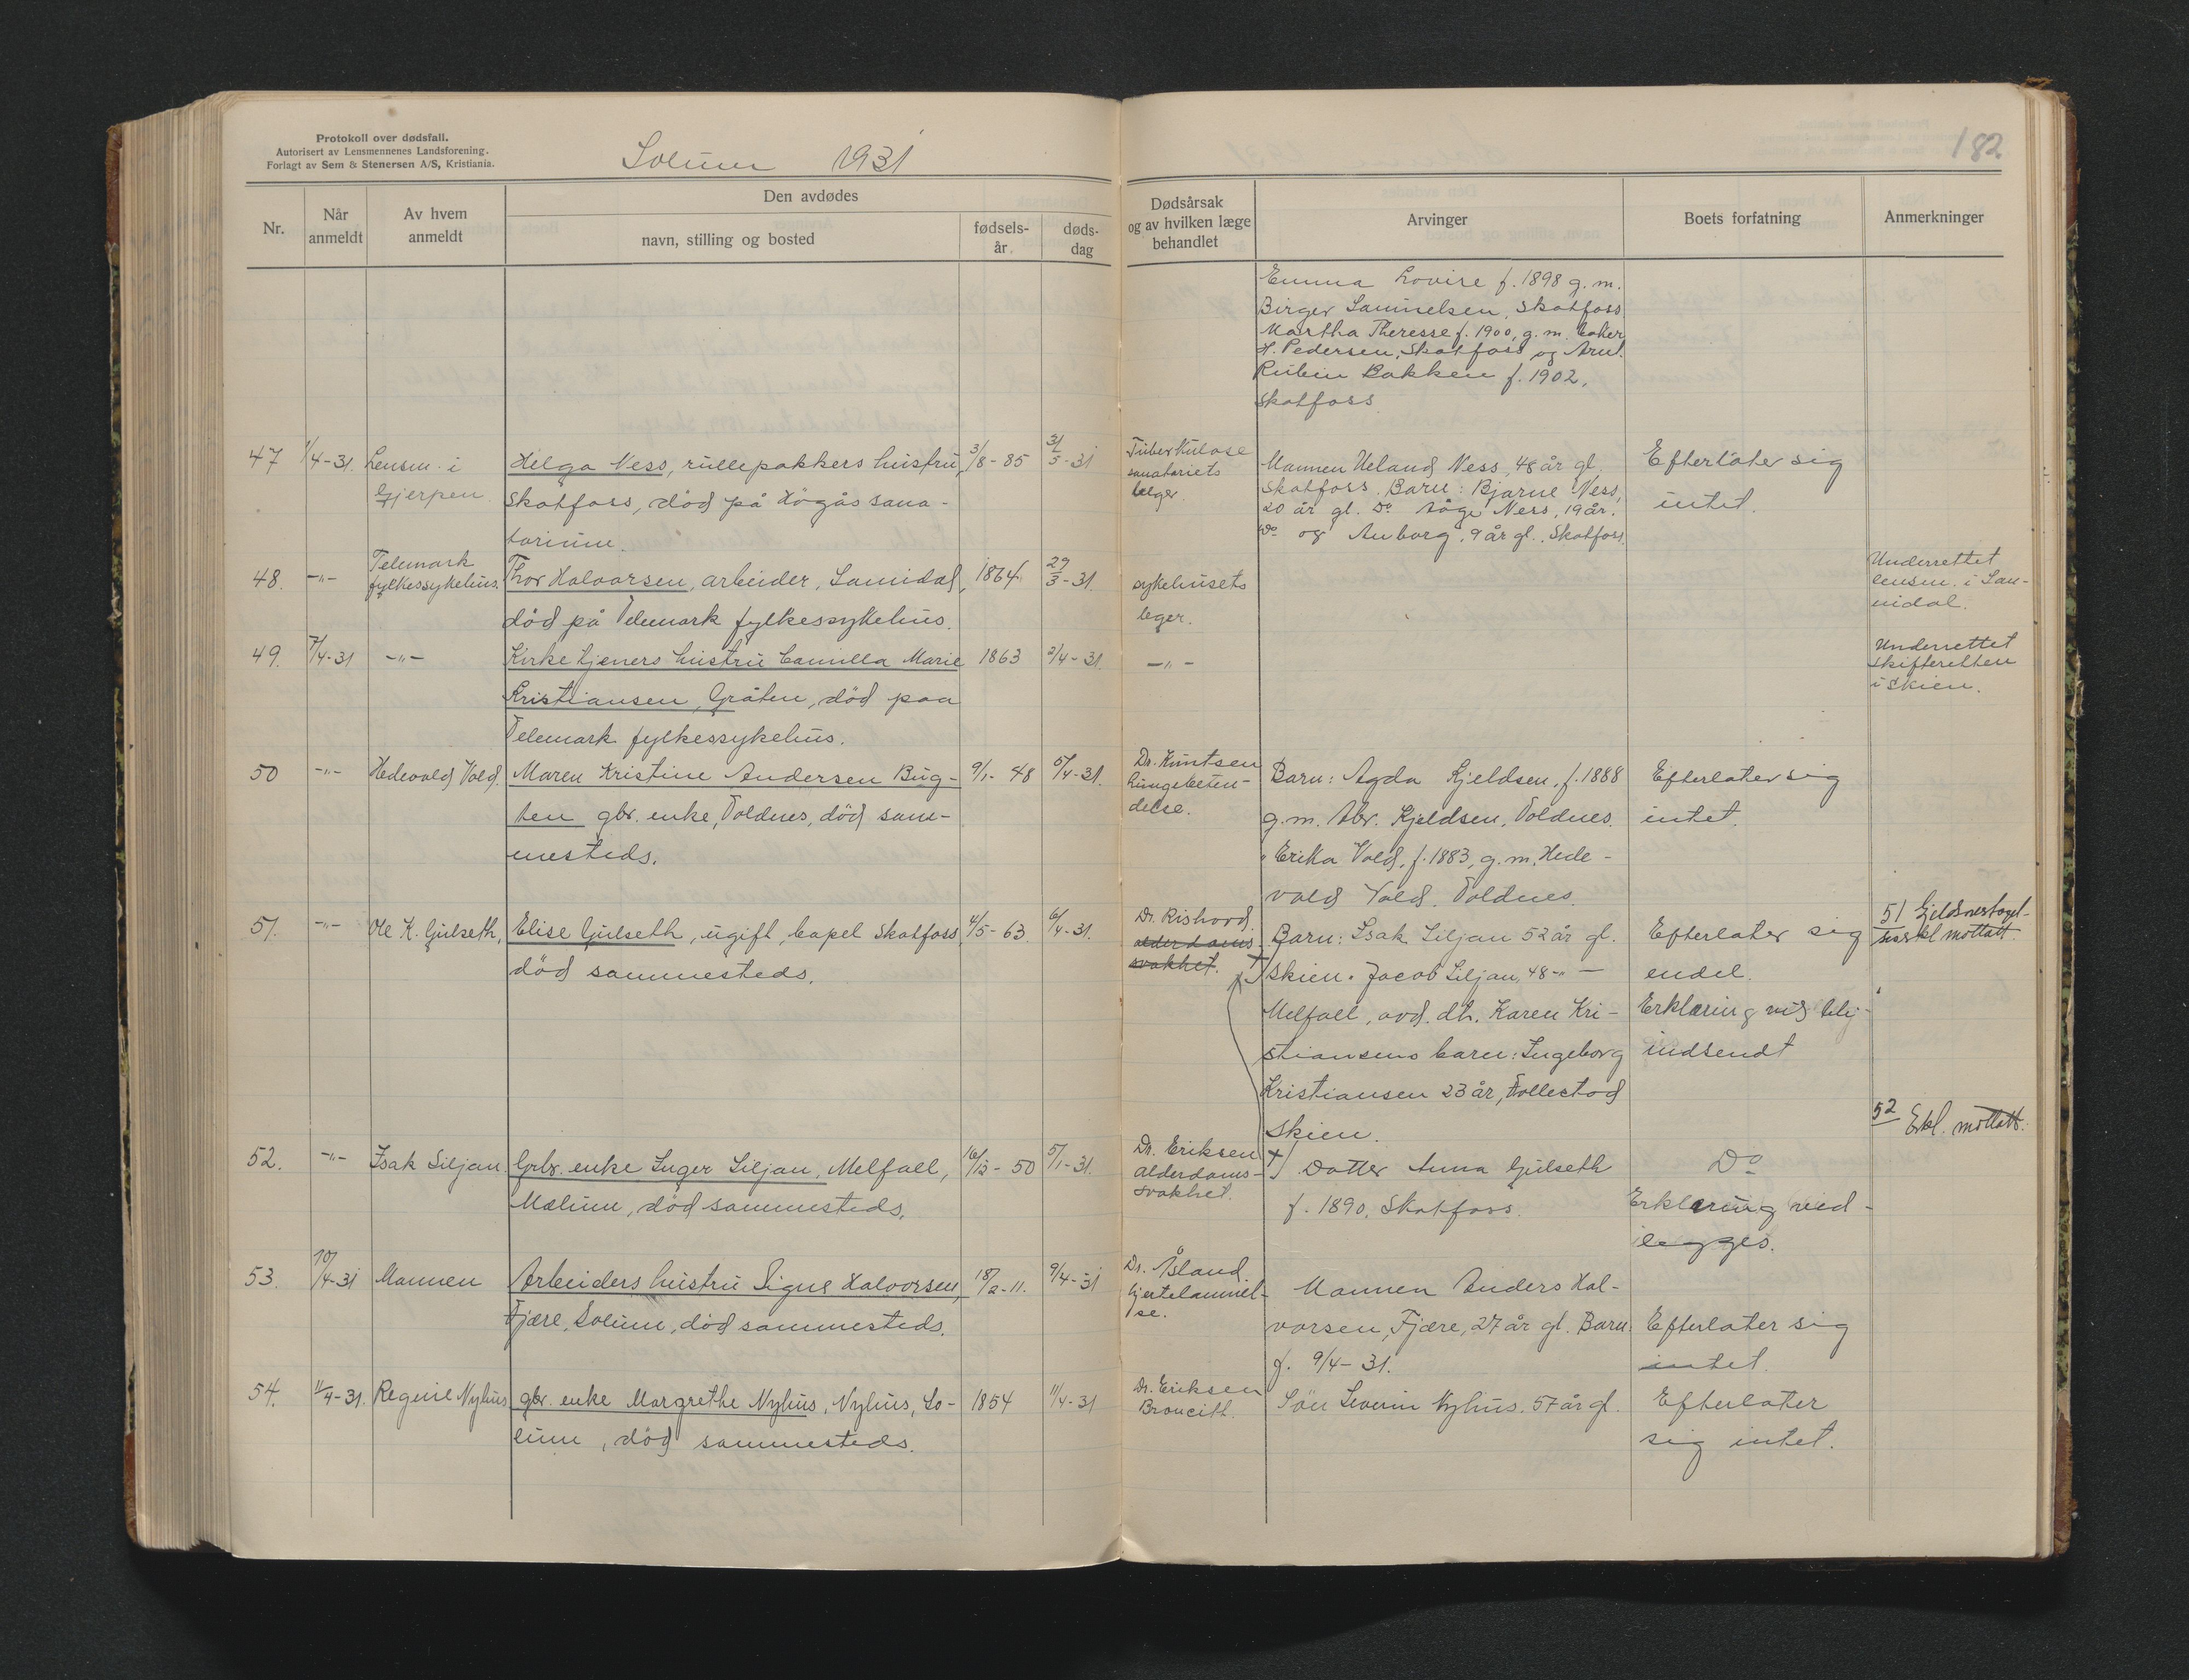 Protokoll over dødsfall.
Autorisert av Lensmennenes Landsforening.
Forlagt av Sem & Stenersen A/S, Kristiania.
Solum 1931
182
Nr.
Når anmeldt
Av hvem anmeldt
Den avdødes
navn, stilling og bosted
fødsels-år.
døds-dag
Dødsårsak og av hvilken læge behandlet
Arvinger
Boets forfatning
Anmerkninger
Emma Lovise f. 1898 g. m.
Birger Samuelsen, Skotfoss
Martha Theresse f. 1900, g. m. baker
H. Pedersen, Skotfoss og Arnt
Rubin Bakken f. 1902,
Skotfoss.
47 1/4-31. Lensm. i
Gjerpen.
Helga Ness, rullepakkers hustru,
Skotfoss, död på Högås sana-
torium.
3/8-85
31/3-31
Tuberkulose
sanatoriets
læger.
Mannen Ueland Ness, 48 år gl.
Skotfoss. Barn: Bjarne Ness,
20 år gl. Do Åge Ness, 19 år.
Do og Anborg, 9 år gl., Skotfoss.
Efterlater sig
intet.
48. -"- Telemark
fylkessykehus.
Thor Halvorsen, arbeider, Sannidal,
död på Telemark fylkessykehus.
1864.
29/3-31.
sykehusets
leger.
Underrettet
lensm. i San-
nidal.
49. 7/4-31 -"-
Kirketjeners hustru Camilla Marie
Kristiansen, Gråten, död paa
Telemark fylkessykehus.
1863
2/4-31.
-"-
Underrettet
skifteretten
i Skien.
50 -"- Hedevald Vold.
Maren Kristine Andersen Bug-
ten gbr. enke, Voldnes, död sam-
mesteds.
9/1-48
5/4-31.
Dr. Knutsen
Lungebeten-
delse.
Barn: Agda Kjeldsen, f. 1888
g. m. Abr. Kjeldsen, Voldnes.
" Erika Vold, f. 1883, g. m. Hede-
vald Vold, Voldnes.
Efterlater sig
intet.
51. -"- Ole K. Gulseth,
Elise Gulseth, ugift, Capel Skotfoss,
död sammesteds.
4/5-63
6/4-31.
Dr. Rishovd.
alderdoms-
svakhet.
Barn: Isak Siljan 52 år gl.
Skien. Jacob Siljan, 48 -"-
Melfall, avd. dt. Karen Kri-
stiansens barn: Ingeborg
Kristiansen 23 år, Follestad
Skien.
Efterlater sig
endel.
Erklæring vil bli
indsendt
51 Gjeldsovertagel-
seserkl mottatt.
52 Erkl. mottatt.
52. -"- Isak Siljan.
Gbr. enke Inger Siljan, Melfall,
Mælum, död sammesteds.
16/12-50
5/1-31.
Dr. Eriksen
alderdoms-
svakhet.
Datter Anna Gulseth
f. 1890, Skotfoss.
Do
Erklæring ved-
legges.
53. 10/4-31 Mannen
Arbeiders hustru Signe Halvorsen,
Fjære, Solum, död sammesteds.
18/2-11.
9/4-31
Dr. Åsland.
hjertelammel-
se.
Mannen Anders Hal-
vorsen, Fjære, 27 år gl. Barn:
f. 9/4-31.
Efterlater sig
intet.
54. 11/4-31. Regine Nyhus
gbr. enke Margrethe Nyhus, Nyhus, So-
lum, död sammesteds.
1854
11/4-31
Dr. Eriksen
Broncitt.
Sön Severin Nyhus. 57 år gl.
Efterlater
sig intet.